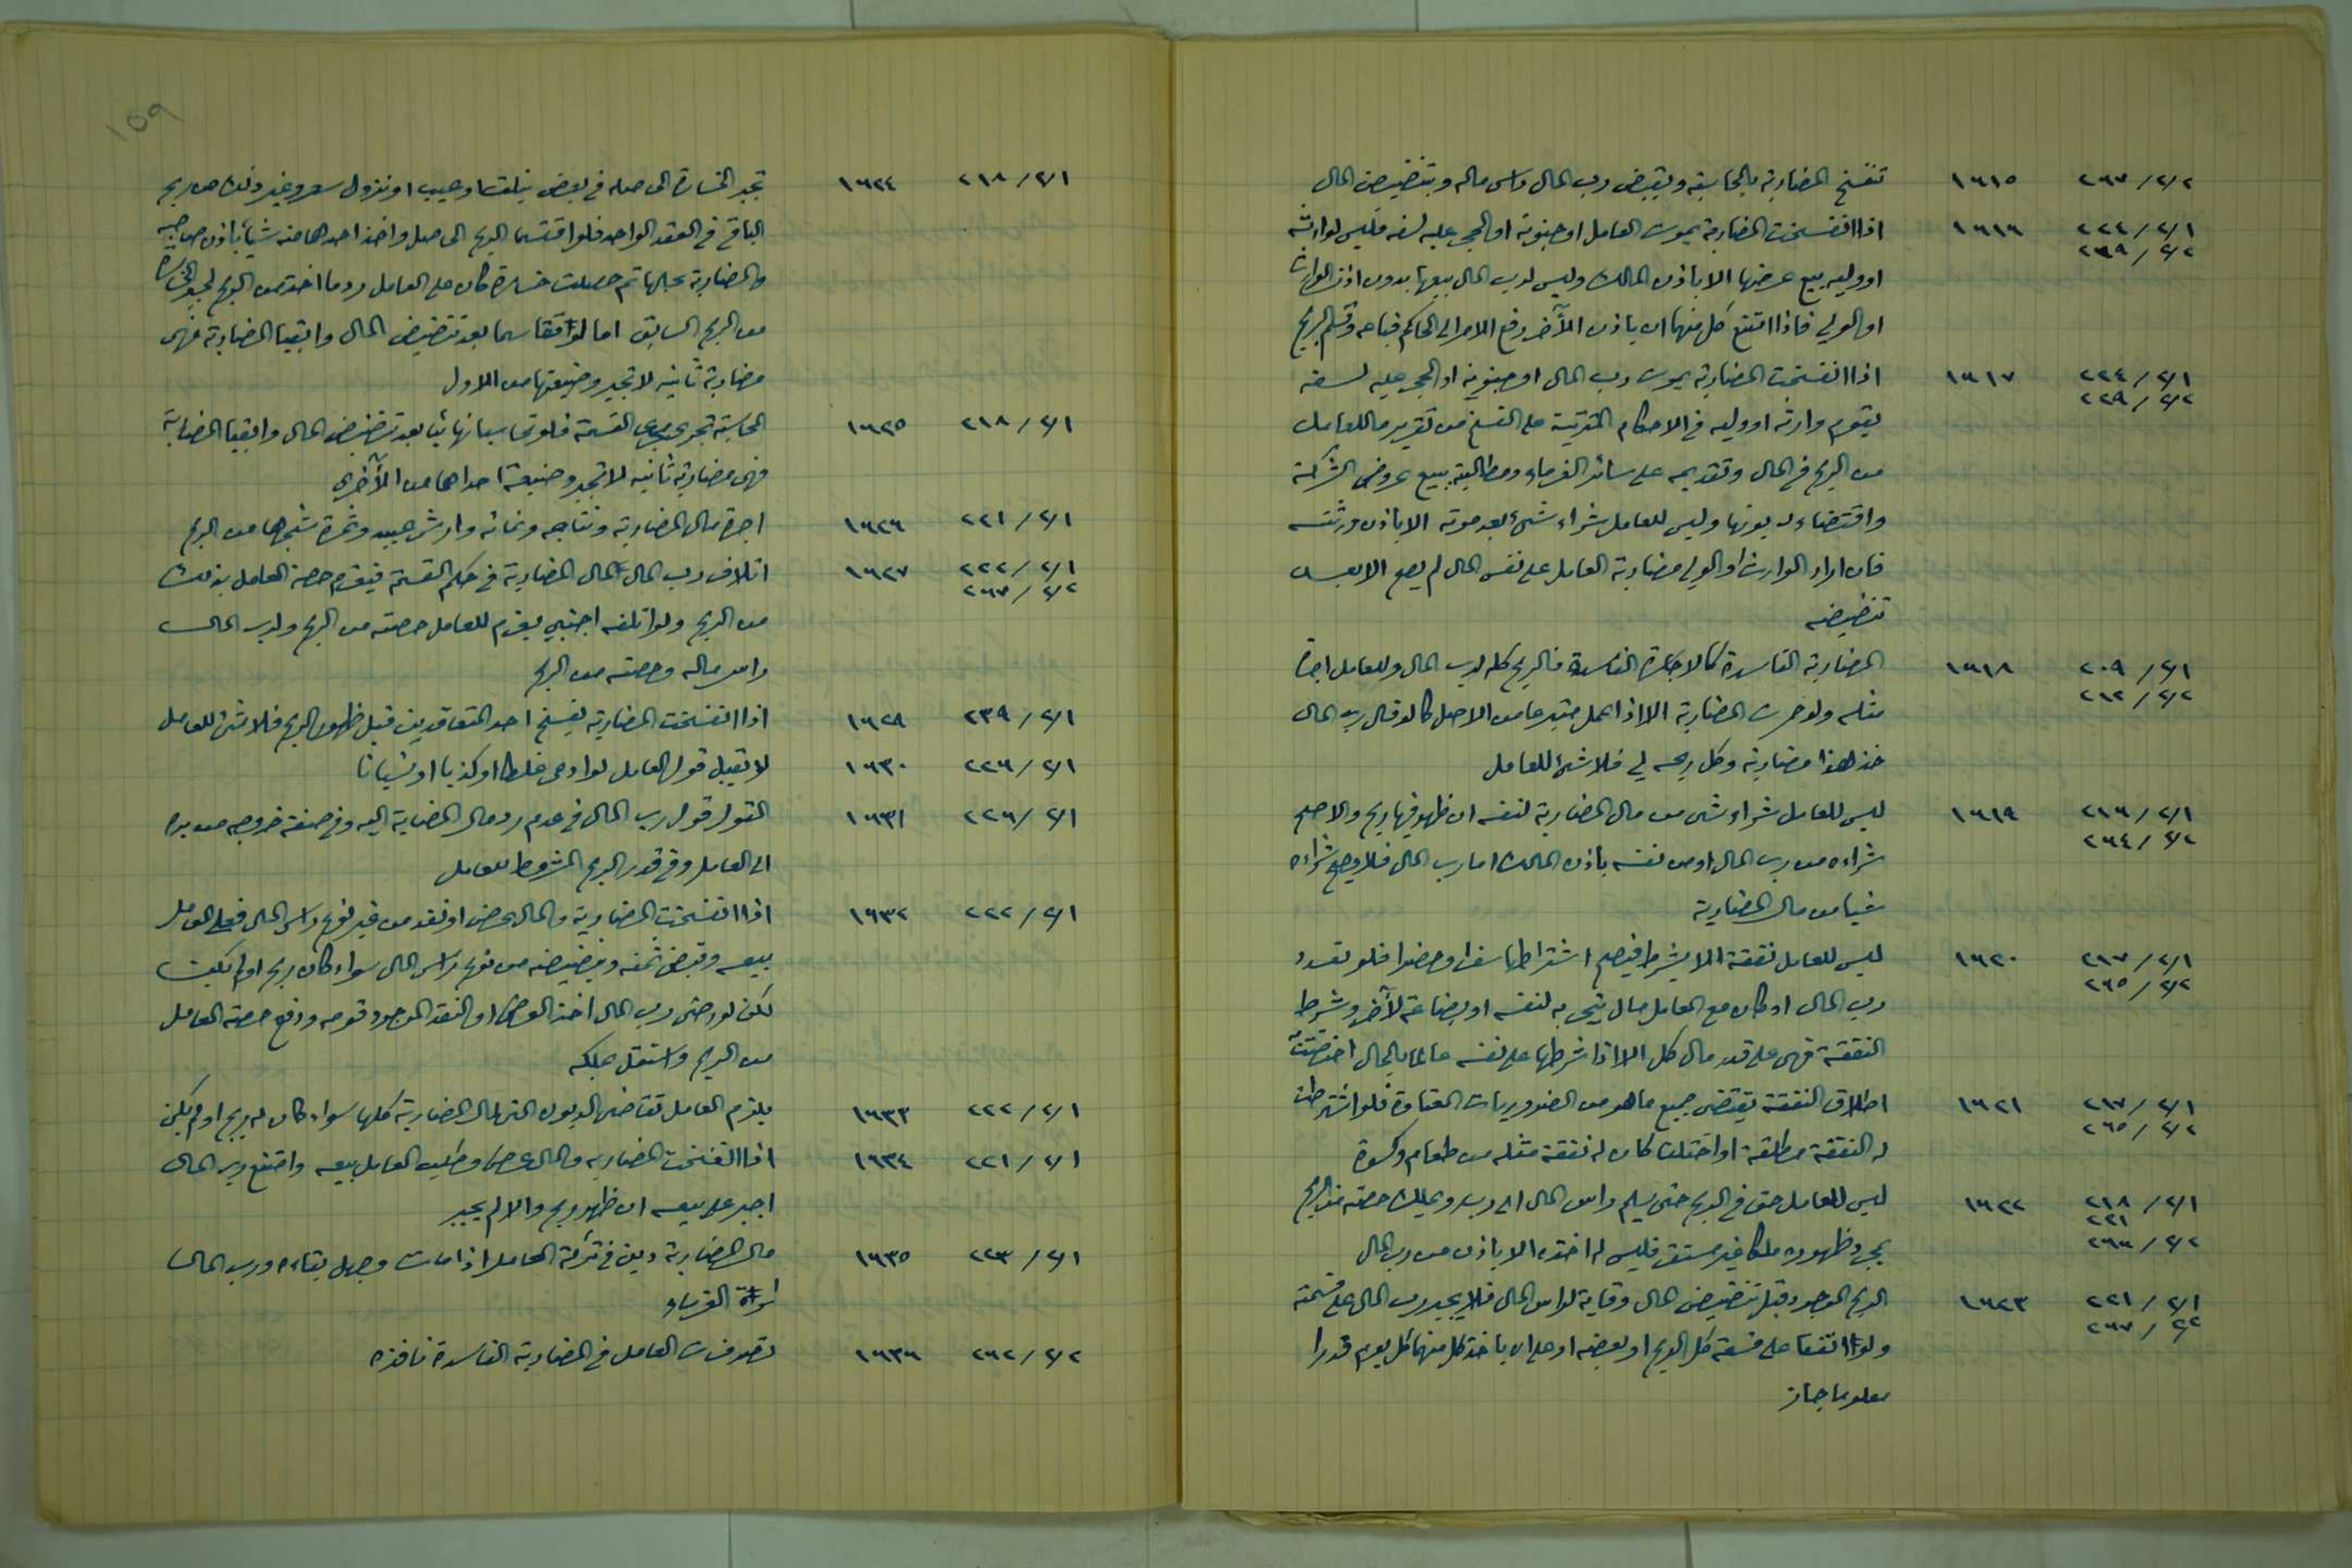 ٢/٢ / ٢٦٧ ١٦١٥ تنفسخ المضاربة بالمحاسبة ويقبض رب المال راس ماله وبتنضيض المال
٢/١ / ٢٢٤ ١٦١٦ اذا انفسخت المضاربة بموت العامل او جنونه او الحجر عليه لسفه فليس لوارثه
٢/٢ / ٢٦٩
او وليه بيع عرضها الا باذن المالك وليس لرب المال بيعها بدون اذن الوارث
او الولي فاذا امتنع كل منهما ان ياذن للآخر رفع الامر الى الحاكم فباعه وقسم الربح
٢/١ / ٢٢٤ ١٦١٧ اذا انفسخت المضاربة بموت رب المال او جنونه او الحجر عليه لسفه
٢/٢ / ٢٢٩
يقوم وارثه او وليه في الاحكام المترتبة على الفسخ من تقرير ما للعامل
من الربح في المال وتقديمه على سائر الغرماء ومطالبته ببيع عروض الشركة
واقتضاء ديونها وليس للعامل شراء شيء بعد موته الا باذن ورثته
فان اراد الوارث او الولي مضاربة العامل على نفس المال لم يصح الا بعد
تنضيضه
٢/١ / ٢٠٩ ١٦١٨ المضاربة الفاسدة كالاجارة الفاسدة فالربح كله لرب المال وللعامل اجرة
٢/٢ / ٢٦٢
مثله ولو خسرت المضاربة الا اذا عمل متبرعا من الاصل كما لو قال رب المال
خذ هذا مضاربة وكل ربحه لي فلا شيء للعامل
٢/١ / ٢١٦ ١٦١٩ ليس للعامل شراء شيء من مال المضاربة لنفسه ان ظهر فيها ربح والا صح
٢/٢ / ٢٦٤
شراءه من رب المال او من نفسه باذن المالك اما رب المال فلا يصح شراءه
شيئا من مال المضاربة
٢/١ / ٢١٧ ١٦٢٠ ليس للعامل نفقة الا بشرط فيصح اشتراطها سفرا وحضرا فلو تعدد
٢/٢ / ٢٦٥
رب المال او كان مع العامل مال يتجر به لنفسه او بضاعة لآخر وشرط
النفقة فهي على قدر مال كل الا اذا شرطها على نفسه عالما بالحال اختصت به
٢/١ / ٢١٧ ١٦٢١ اطلاق النفقة يقتضي جميع ما هو من الضروريات المعتادة فلو اشترطت
٢/٢ / ٢٦٥
له النفقة مطلقة او اختلفا كان له نفقة مثله من طعام وكسوة
٢/١ / ٢١٨ ١٦٢٢ ليس للعامل حق في الربح حتى يسلم راس المال الى ربه ويملك حصته من الربح
٢٢١
٢/٢ / ٢٦٦ بمجرد ظهوره ملكا غير مستقر فليس له اخذه الا باذن من رب المال
٢/١ / ٢٢١ ١٦٢٣ الربح الموجود قبل تنضيض المال وقاية لراس المال فلا يجبر رب المال على قسمته
٢/٢ / ٢٦٧
ولو اتفقا على قسمة كل الربح او بعضه او على ان ياخذ كل منهما كل يوم قدرا
معلوما جاز
١٥٩
٢/١ / ٢١٨ ١٦٢٤ تجبر الخسارة الحاصله في بعض بتلف او عيب او نزول سعر وغير ذلك من ربح
الباقي في العقد الواحد فلو اقتسما الربح الحاصل واخذ احدهما منه شيئا باذن صاحبه
والمضاربة بحالها ثم حصلت خسارة كان على العامل رد ما اخذ من الربح لجبر الخسارة
من الربح السابق اما لو تقاسما بعد تنضيض المال وابقيا المضاربة فهي
مضاربة ثانيه لا تجبر وضيعتها من الاول
٢/١ / ٢١٨ ١٦٢٥ المحاسبة تجري مجرى القسمة فلو تحاسبا نهائيا بعد تنضيض المال وابقيا المضاربة
فهي مضاربة ثانيه لا تجبر وضيعة احداهما من الأخرى
٢/١ / ٢٢١ ١٦٢٦ اجرة مال المضاربة ونتاجه ونمائه وارش عيبه وثمرة شجرها من الربح
٢/١ / ٢٢٢ ١٦٢٧ اتلاف رب المال لمال المضاربة في حكم القسمة فيغرم حصة العامل بذلك
٢/٢ / ٢٦٧
من الربح ولو اتلفه اجنبي يغرم للعامل حصته من الربح ولرب المال
راس ماله وحصته من الربح
٢/١ / ٢٣٩ ١٦٢٩ اذا انفسخت المضاربة بفسخ احد المتعاقدين قبل ظهور الربح فلا شيء للعامل
٢/١ / ٢٢٦ ١٦٣٠ لا تقبل قول العامل لو ادعى غلطا او كذبا او نسيانا
٢/١ / ٢٢٦ ١٦٣١ القول قول رب المال في عدم رد مال المضاربة اليه وفي صفة خروجه من يده
الى العامل وفي قدر الربح المشروط للعامل
٢/١ / ٢٢٢ ١٦٣٢ اذا انفسخت المضاربة والمال عرض او نقد من غير نوع راس المال فعلى العامل
بيعه وقبض ثمنه وتنضيضه من نوع راس المال سواء كان ربح او لم يكن
لكن لو رضي رب المال اخذ العرض او النقد الموجود قومه ودفع حصة العامل
من الربح واستقل بملكه
٢/١ / ٢٢٢ ١٦٣٣ يلزم العامل تقاضي الديون التي لمال المضاربة كلها سواء كان له ربح او لم يكن
٢/١ / ٢٢١ ١٦٣٤ اذا انفسخت المضاربه والمال عرض وطلب العامل بيعه وامتنع رب المال
اجبر على بيعه ان ظهر ربح والا لم يجبر
٢/١ / ٢٢٣ ١٦٣٥ مال المضاربة دين في تركة العامل اذا مات وجهل بقاءه ورب المال
اسوة الغرماء
٢/٢ / ٢٦٢ ١٦٣٦ تصرفات العامل في المضاربة الفاسدة نافذه